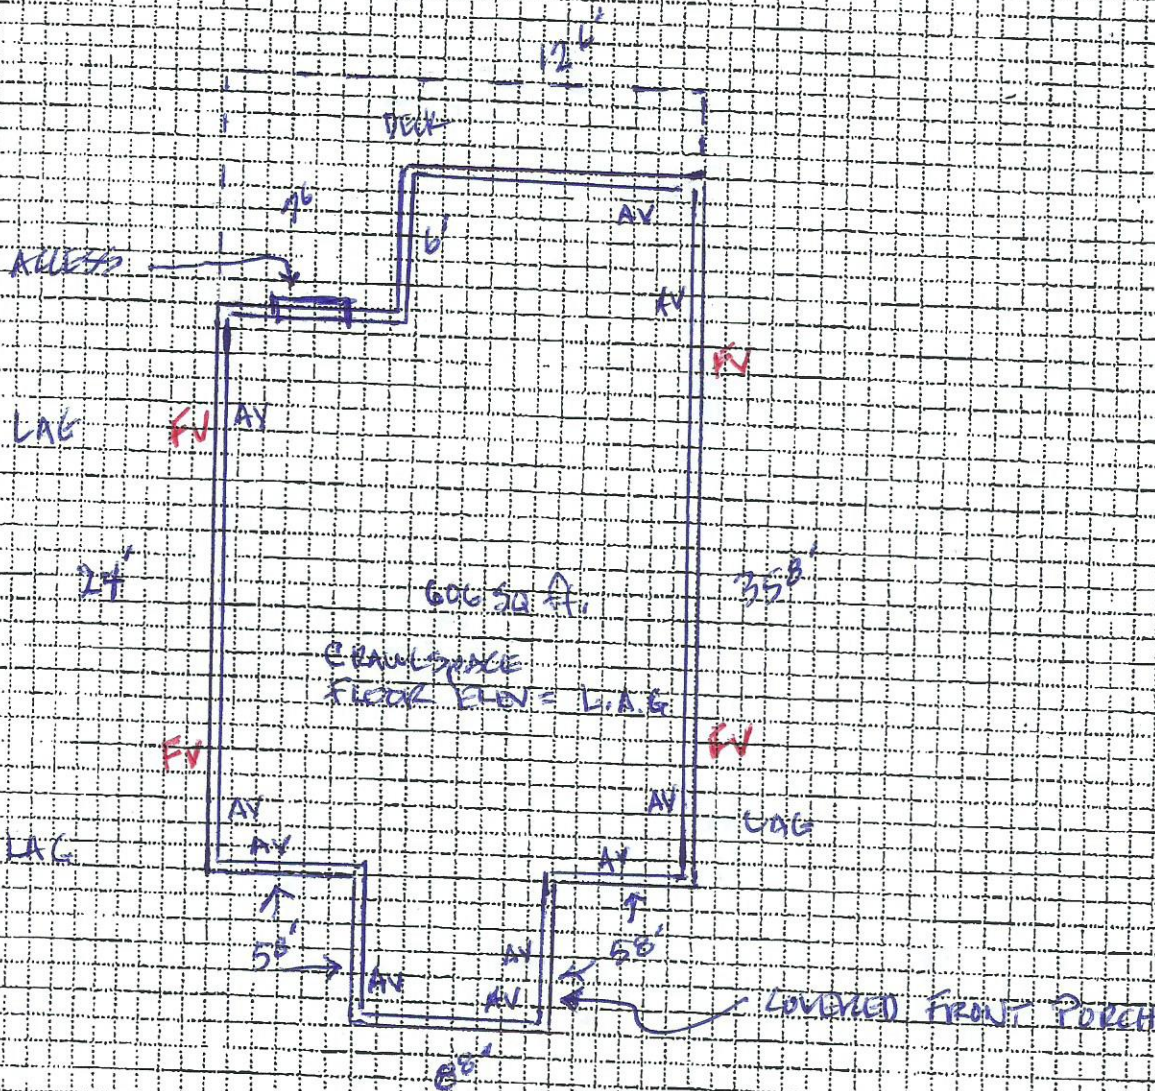 12 6'
DECK
AV
6'
ACCESS
AV
FV
LAG
FV
AV
24'
606 SQ ft.
35 8'
CRAWLSPACE
FLOOR ELEV = L.A.G
FV
FV
AV
AV
LAG
AV
AV
5 8'
5 8'
AV
AV
AV
COVERED FRONT PORCH
8 8'